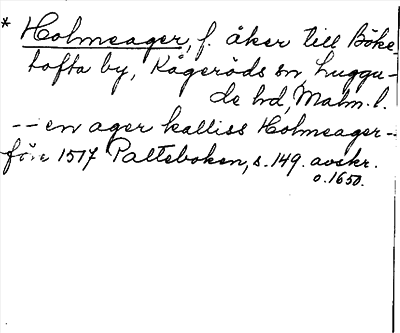 * Holmeager, f. åker till Böke-
tofta by, Kågeröds sn, Luggu-
de hd, Malm. l.
-- en ager kalliss Holmeager --
före 1517 Palteboken, s. 149. avskr.
o. 1650.